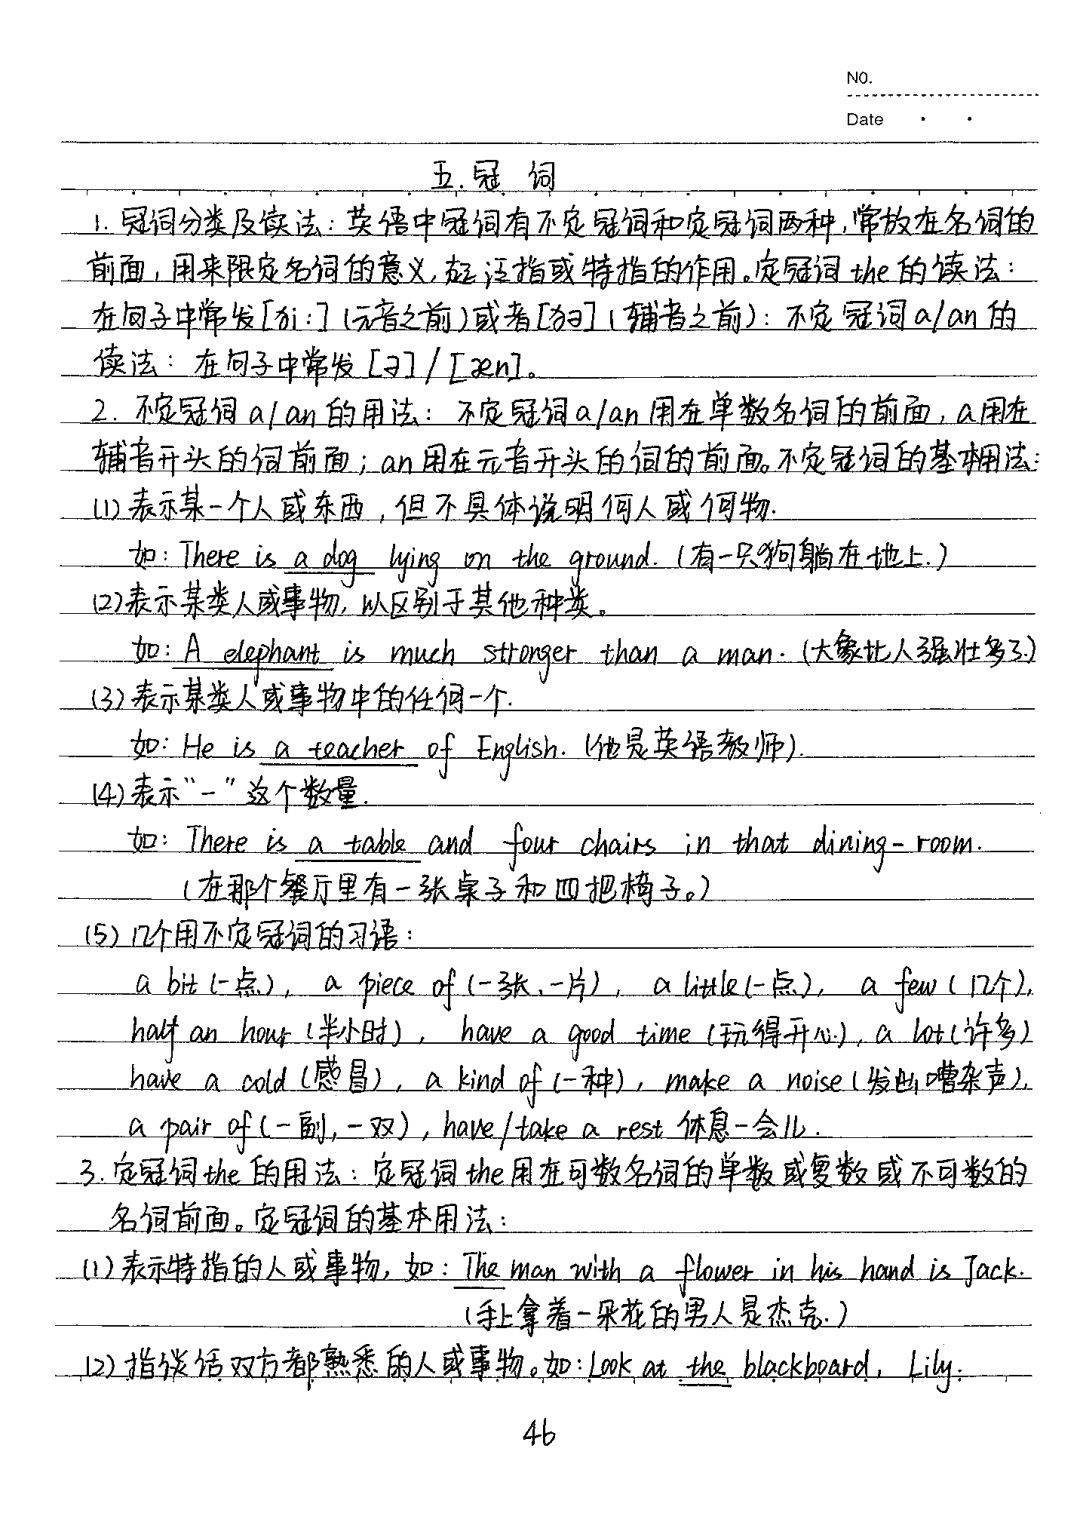 NO.
Date
五.冠词
1.冠词分类及读法:英语中冠词有不定冠词和定冠词两种,常放在名词的
前面,用来限定名词的意义,起泛指或特指的作用。定冠词the的读法:
在句子中常发[ði:](元音之前)或者[ðə](辅音之前):不定冠词a/an的
读法:在句子中常发[ə]/[æn]。
2.不定冠词a/an的用法:不定冠词a/an用在单数名词的前面,a用在
辅音开头的词前面;an用在元音开头的词的前面。不定冠词的基本用法:
(1)表示某一个人或东西,但不具体说明何人或何物.
如:There is a dog lying on the ground.(有一只狗躺在地上.)
(2)表示某类人或事物,以区别于其他种类。
如:A elephant is much stronger than a man.(大象比人强壮多了.)
(3)表示某类人或事物中的任何一个.
如:He is a teacher of English.(他是英语教师).
(4)表示"一"这个数量.
如:There is a table and four chairs in that dining-room.
(在那个餐厅里有一张桌子和四把椅子。)
(5)几个用不定冠词的习语:
a bit(一点), a piece of(一张、一片), a little(一点), a few(几个),
half an hour(半小时), have a good time(玩得开心), a lot(许多)
have a cold(感冒), a kind of(一种), make a noise(发出嘈杂声),
a pair of(一副,一双), have/take a rest 休息一会儿.
3.定冠词the的用法:定冠词the用在可数名词的单数或复数或不可数的
名词前面。定冠词的基本用法:
(1)表示特指的人或事物,如:The man with a flower in his hand is Jack.
(手上拿着一朵花的男人是杰克.)
(2)指谈话双方都熟悉的人或事物。如:Look at the blackboard, Lily.
46